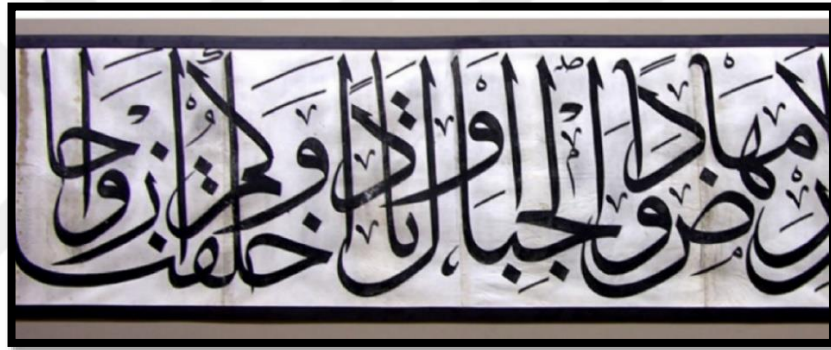 مهادا والجبال اوتادا وخلقنكم ازوجا